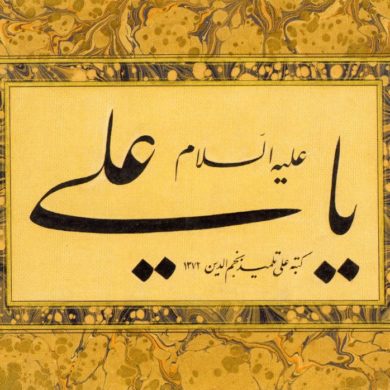 یا علی
علیه السّلام
کتبه علی تلمیذ نجم الدین ۱۳۷۲